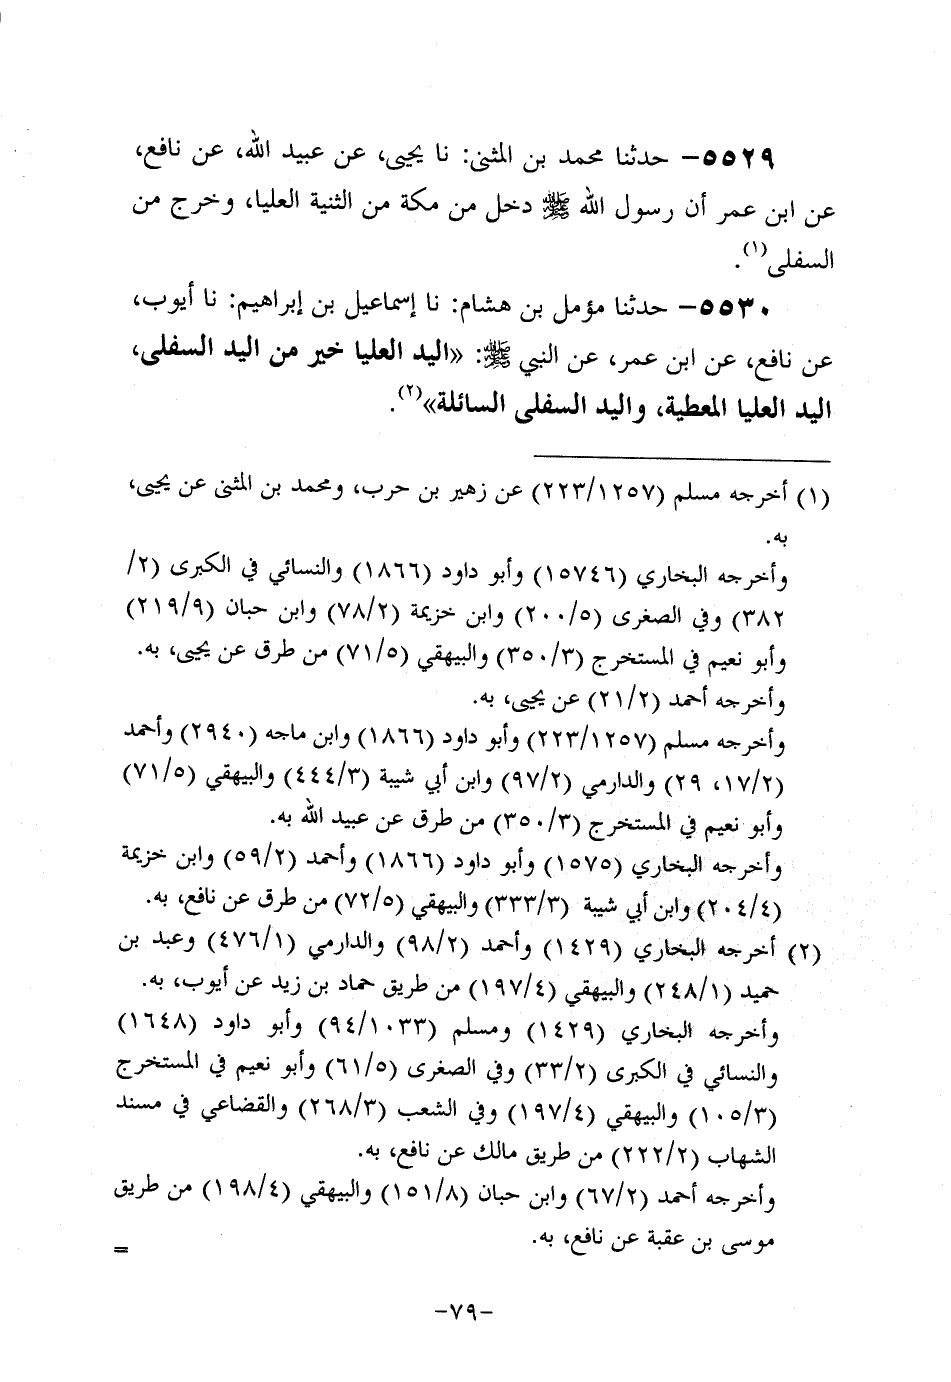 ٥٥٢٩- حدثنا محمد بن المثنى: نا يحيى، عن عبيد الله، عن نافع،
عن ابن عمر أن رسول الله ﷺ دخل من مكة من الثنية العليا، وخرج من
السفلى(١).
٥٥٣٠- حدثنا مؤمل بن هشام: نا إسماعيل بن إبراهيم: نا أيوب،
عن نافع، عن ابن عمر، عن النبي ﷺ: «اليد العليا خير من اليد السفلى،
اليد العليا المعطية، واليد السفلى السائلة»(٢).
(١) أخرجه مسلم (٢٢٣/١٢٥٧) عن زهير بن حرب، ومحمد بن المثنى عن يحيى،
به.
وأخرجه البخاري (١٥٧٤٦) وأبو داود (١٨٦٦) والنسائي في الكبرى (٢/
٣٨٢) وفي الصغرى (٢٠٠/٥) وابن خزيمة (٧٨/٢) وابن حبان (٢١٩/٩)
وأبو نعيم في المستخرج (٣٥٠/٣) والبيهقي (٧١/٥) من طرق عن يحيى، به.
وأخرجه أحمد (٢١/٢) عن يحيى، به.
وأخرجه مسلم (٢٢٣/١٢٥٧) وأبو داود (١٨٦٦) وابن ماجه (٢٩٤٠) وأحمد
(١٧/٢، ٢٩) والدارمي (٩٧/٢) وابن أبي شيبة (٤٤٤/٣) والبيهقي (٧١/٥)
وأبو نعيم في المستخرج (٣٥٠/٣) من طرق عن عبيد الله به.
وأخرجه البخاري (١٥٧٥) وأبو داود (١٨٦٦) وأحمد (٥٩/٢) وابن خزيمة
(٢٠٤/٤) وابن أبي شيبة (٣٣٣/٣) والبيهقي (٧٢/٥) من طرق عن نافع، به.
(٢) أخرجه البخاري (١٤٢٩) وأحمد (٩٨/٢) والدارمي (٤٧٦/١) وعبد بن
حميد (٢٤٨/١) والبيهقي (١٩٧/٤) من طريق حماد بن زيد عن أيوب، به.
وأخرجه البخاري (١٤٢٩) ومسلم (٩٤/١٠٣٣) وأبو داود (١٦٤٨)
والنسائي في الكبرى (٣٣/٢) وفي الصغرى (٦١/٥) وأبو نعيم في المستخرج
(١٠٥/٣) والبيهقي (١٩٧/٤) وفي الشعب (٢٦٨/٣) والقضاعي في مسند
الشهاب (٢٢٢/٢) من طريق مالك عن نافع، به.
وأخرجه أحمد (٦٧/٢) وابن حبان (١٥١/٨) والبيهقي (١٩٨/٤) من طريق
موسى بن عقبة عن نافع، به. =
-٧٩-